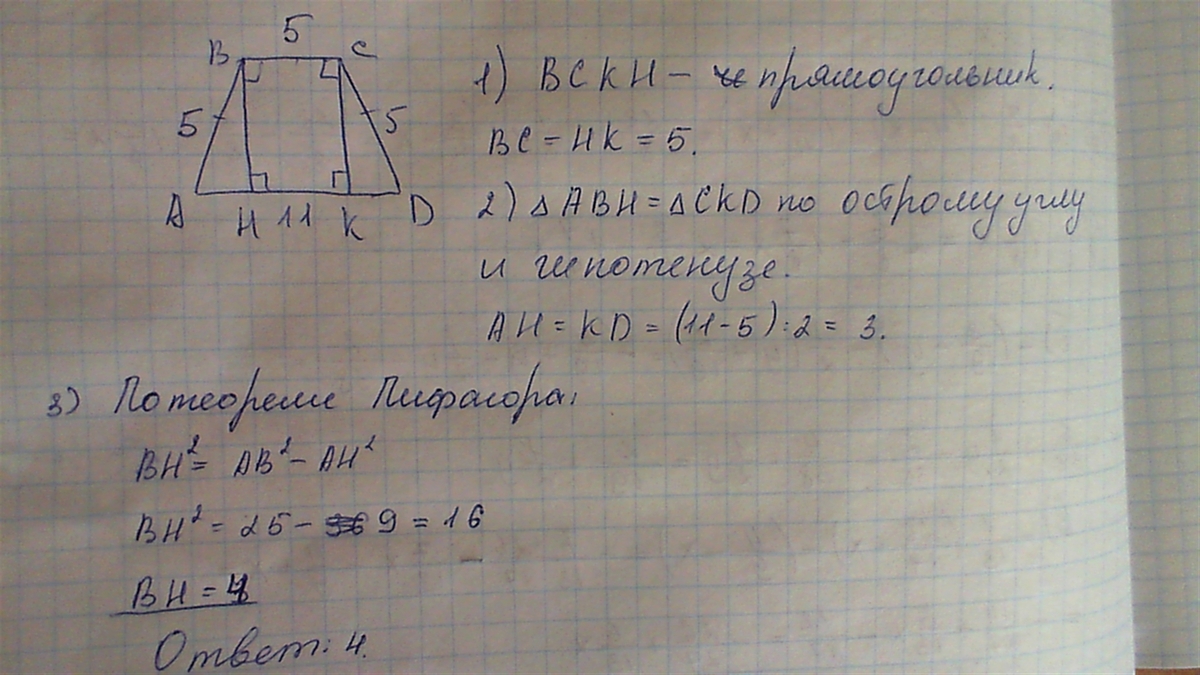 5
B C
5 5
A H 11 K D
1) BCKH – прямоугольник.
BC = HK = 5.
2) △ABH = △CKD по острому углу
и гипотенузе.
AH = KD = (11-5):2 = 3.
3) По теореме Пифагора:
BH² = AB² – AH²
BH² = 25 – 9 = 16
BH = 4
Ответ: 4.